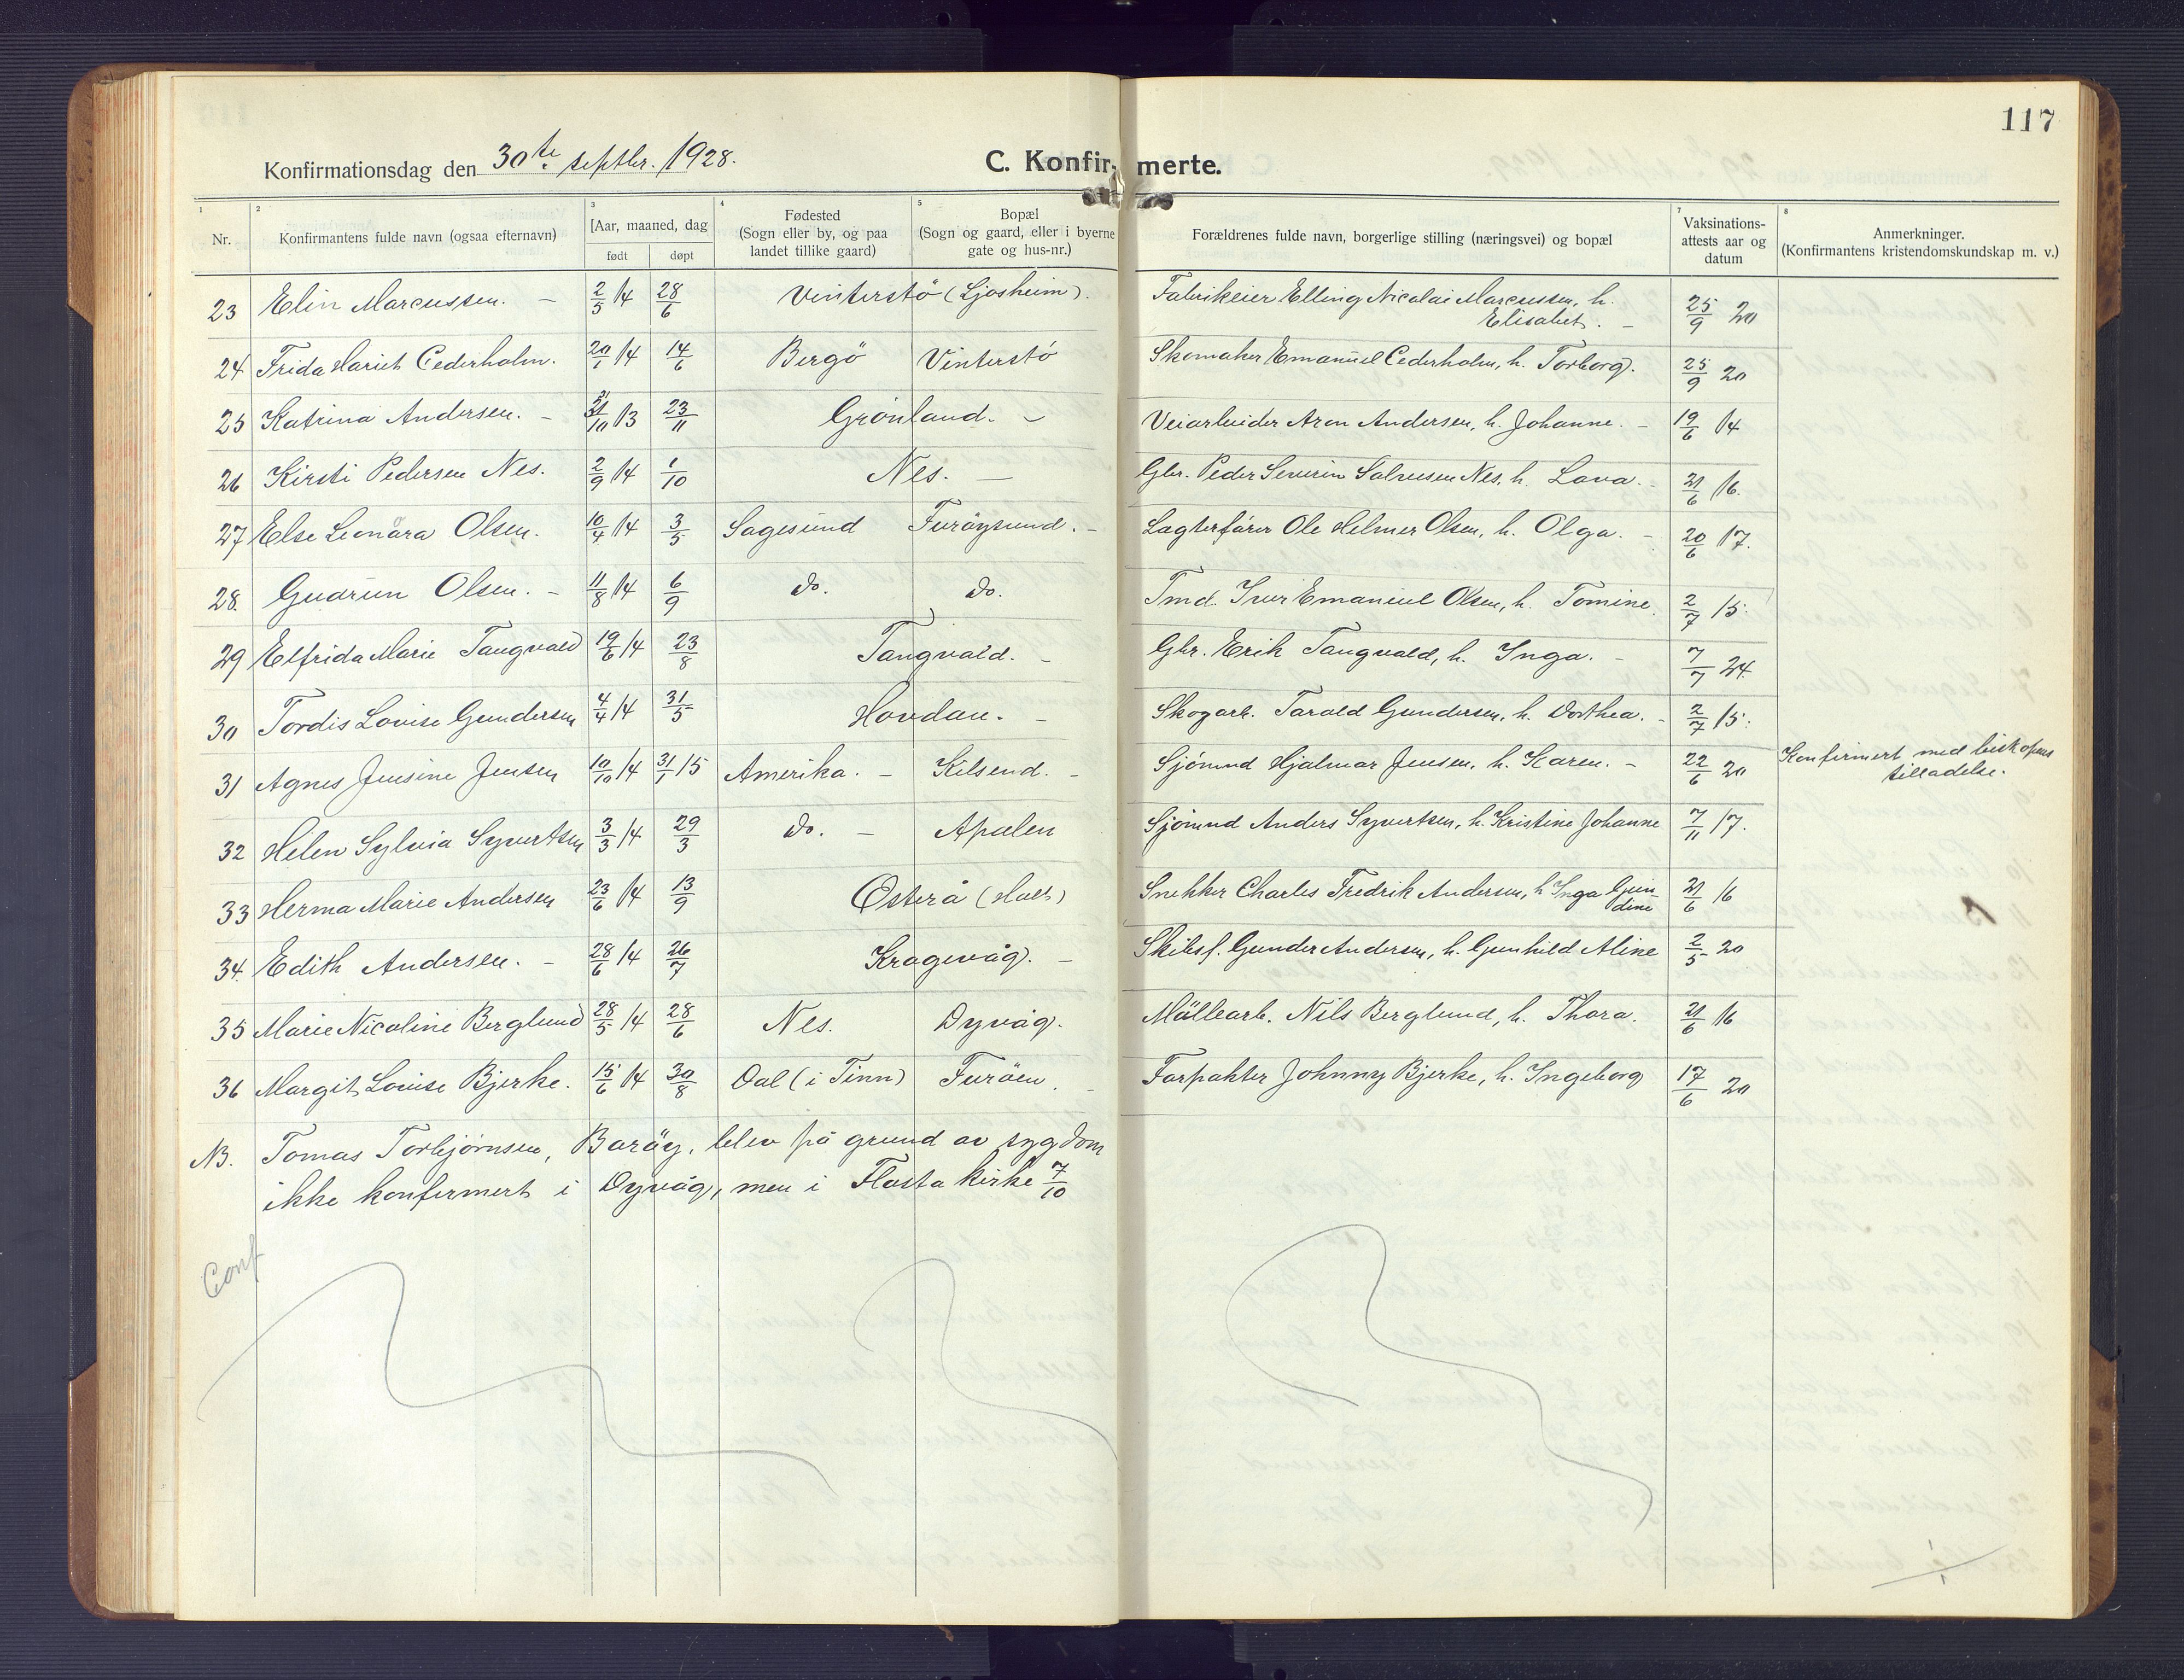 117
Konfirmationsdag den 30te septbr. 1928. C. Konfirmerte.
1 2 3 4 5 7 8
Nr. Konfirmantens fulde navn (ogsaa efternavn) [Aar, maaned, dag født døpt Fødested (Sogn eller by, og paa landet tillike gaard) Bopæl (Sogn og gaard, eller i byerne gate og hus-nr.) Forældrenes fulde navn, borgerlige stilling (næringsvei) og bopæl Vaksinations-attests aar og datum Anmerkninger. (Konfirmantens kristendomskundskap m. v.)
23 Elin Marcussen. – 2/5 14 28/6 Vinterstö (Ljosheim). Fabrikeier Elling Nicolai Marcussen, h. Elisabet. – 25/9 20
24 Frida Hariet Cederholm. 20/1 14 14/6 Bergö Vinterstö Skomaker Emanuel Cederholm, h. Torborg. 25/9 20
25 Katrina Andersen. – 31/10 13 23/11 Grönland. – Veiarbeider Aron Andersen, h. Johanne. – 19/6 14
26 Kirsti Pedersen Nes. 2/9 14 1/10 Nes. – Gbr. Peder Severin Salvesen Nes, h. Lava. – 21/6 16.
27 Else Leonora Olsen. 10/4 14 3/5 Sagesund Furöysund. – Lagterförer Ole Helmer Olsen, h. Olga. – 20/6 17.
28. Gudrun Olsen. – 11/8 14 6/9 do. do. Tmd. Iver Emanuel Olsen, h. Tomine. 2/7 15.
29 Elfrida Marie Tangvald 19/6 14 23/8 Tangvald. – Gbr. Erik Tangvald, h. Inga. – 7/7 24.
30 Tordis Lovise Gundersen 4/4 14 31/5 Hovdan. – Skogarb. Tarald Gundersen, h. Dorthea. – 2/7 15.
31 Agnes Jensine Jensen 10/10 14 31/1 15 Amerika. – Kilsend. – Sjömnd Hjalmar Jensen, h. Karen. – 22/6 20 Konfirmert med biskopens tilladelse.
32 Helen Sylvia Syvertsen 3/3 14 29/3 do. – Apalen Sjömnd Anders Syvertsen, h. Kristine Johanne 7/11 17.
33 Herma Marie Andersen 23/6 14 13/9 Österå (Holt) Snekker Charles Fredrik Andersen, h Inga Gundine 21/6 16
34. Edith Andersen. – 28/6 14 26/7 Kragevåg. – Skibsf. Gunder Andersen, h. Gunhild Aline 2/5 20
35 Marie Nicoline Berglund 28/5 14 28/6 Nes. Dyvåg. Möllearb. Nils Berglund, h. Thora. 21/6 16
36 Margit Lovise Bjerke. 15/6 14 30/8 Dal (i Tinn) Furöen. – Forpakter Johnny Bjerke, h. Ingeborg 17/6 20
NB. Tomas Torbjörnsen, Boröy, blev på grund av sygdom
ikke konfirmert i Dyvåg, men i Flosta kirke 7/10
Conf